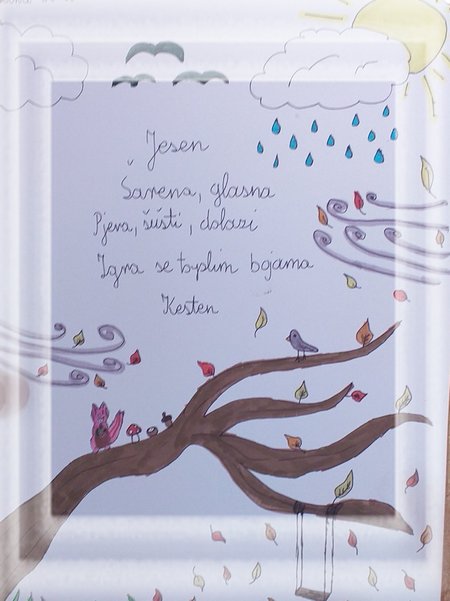 Jesen
Šarena, glasna
Pjeva, šušti, dolazi
Igra se toplim bojama
Kesten